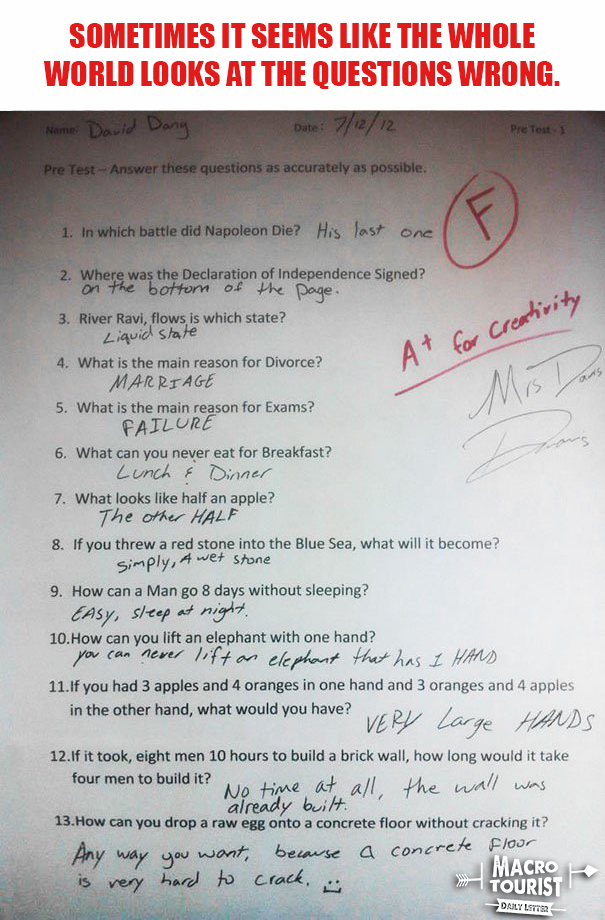 SOMETIMES IT SEEMS LIKE THE WHOLE
WORLD LOOKS AT THE QUESTIONS WRONG.
Name: David Dang Date: 7/12/12 Pre Test - 1
Pre Test – Answer these questions as accurately as possible.
F
1. In which battle did Napoleon Die? His last one
2. Where was the Declaration of Independence Signed?
on the bottom of the page.
3. River Ravi, flows is which state?
Liquid state
A+ for creativity
4. What is the main reason for Divorce?
MARRIAGE
Mrs Davis
5. What is the main reason for Exams?
FAILURE
6. What can you never eat for Breakfast?
Lunch & Dinner
7. What looks like half an apple?
The other HALF
8. If you threw a red stone into the Blue Sea, what will it become?
simply, A wet stone
9. How can a Man go 8 days without sleeping?
EASY, sleep at night.
10.How can you lift an elephant with one hand?
you can never lift an elephant that has 1 HAND
11.If you had 3 apples and 4 oranges in one hand and 3 oranges and 4 apples
in the other hand, what would you have?
VERY Large HANDS
12.If it took, eight men 10 hours to build a brick wall, how long would it take
four men to build it? No time at all, the wall was
already built.
13.How can you drop a raw egg onto a concrete floor without cracking it?
Any way you want, because a concrete floor
is very hard to crack.
MACRO
TOURIST
DAILY LETTER